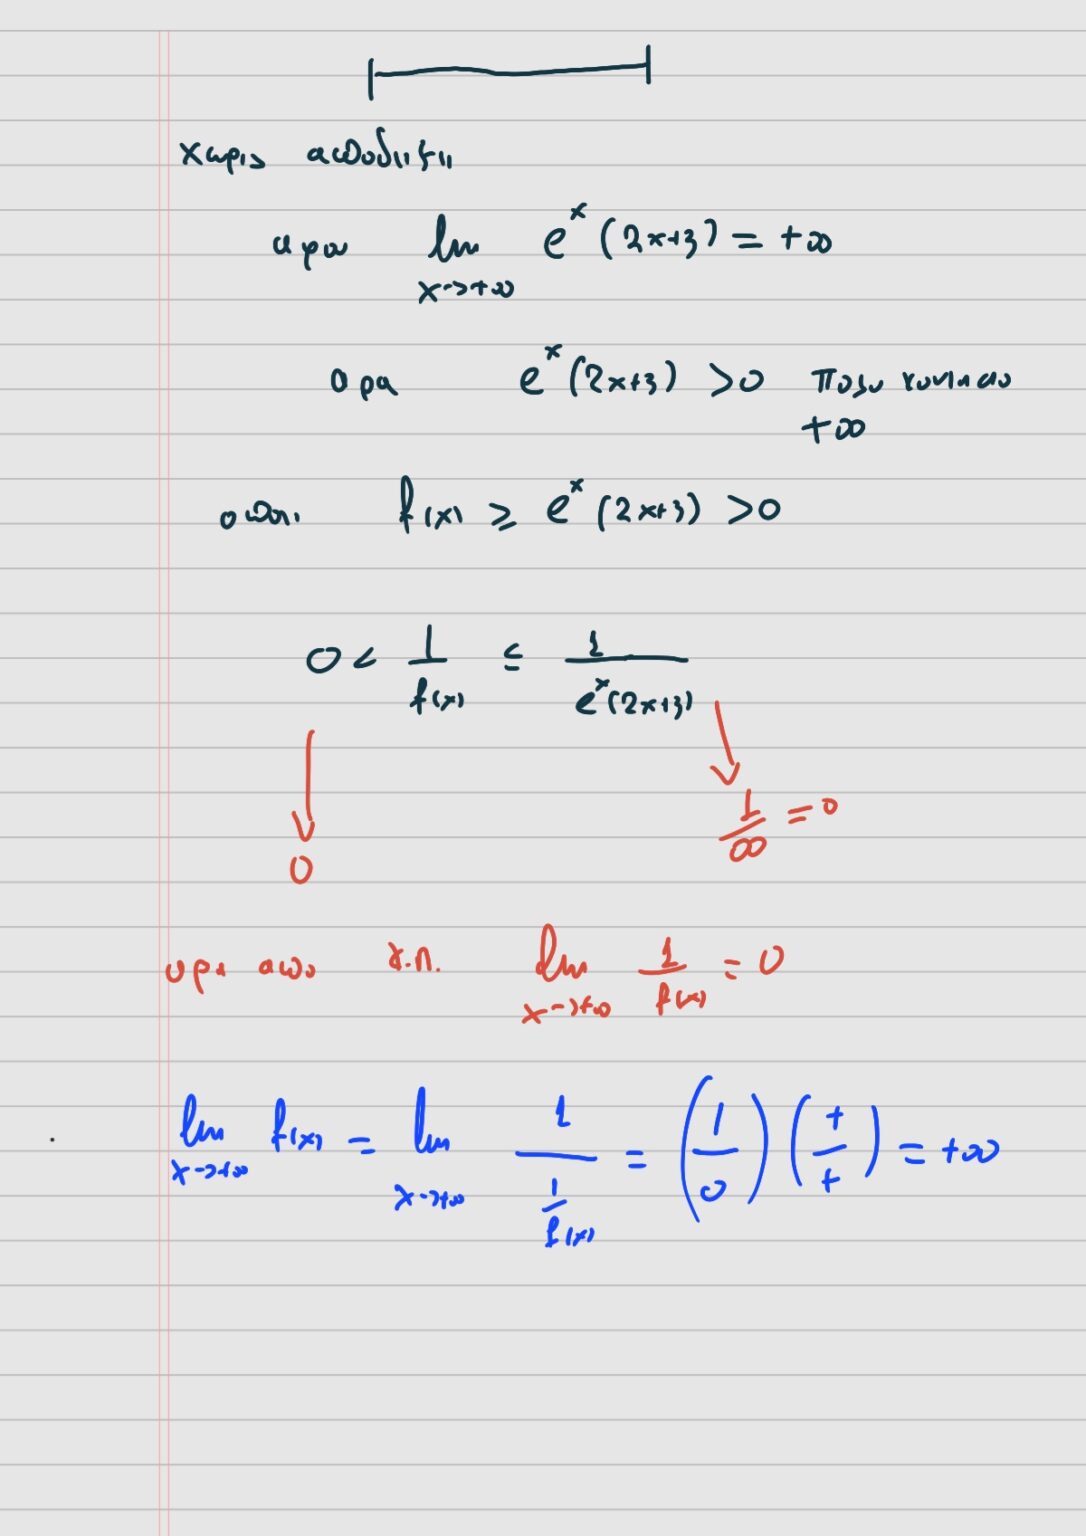 χωρις αποδειξη
αρα lim e^x (2x+3) = +∞
x→+∞
αρα e^x (2x+3) > 0 πολυ κοντα στο
+∞
οποτε f(x) ≥ e^x (2x+3) > 0
0 < 1/f(x) ≤ 1/(e^x (2x+3))
1/∞ = 0
0
αρα απο κ.π. lim 1/f(x) = 0
x→+∞
lim f(x) = lim 1/(1/f(x)) = (1/0) (+/+) = +∞
x→+∞ x→+∞